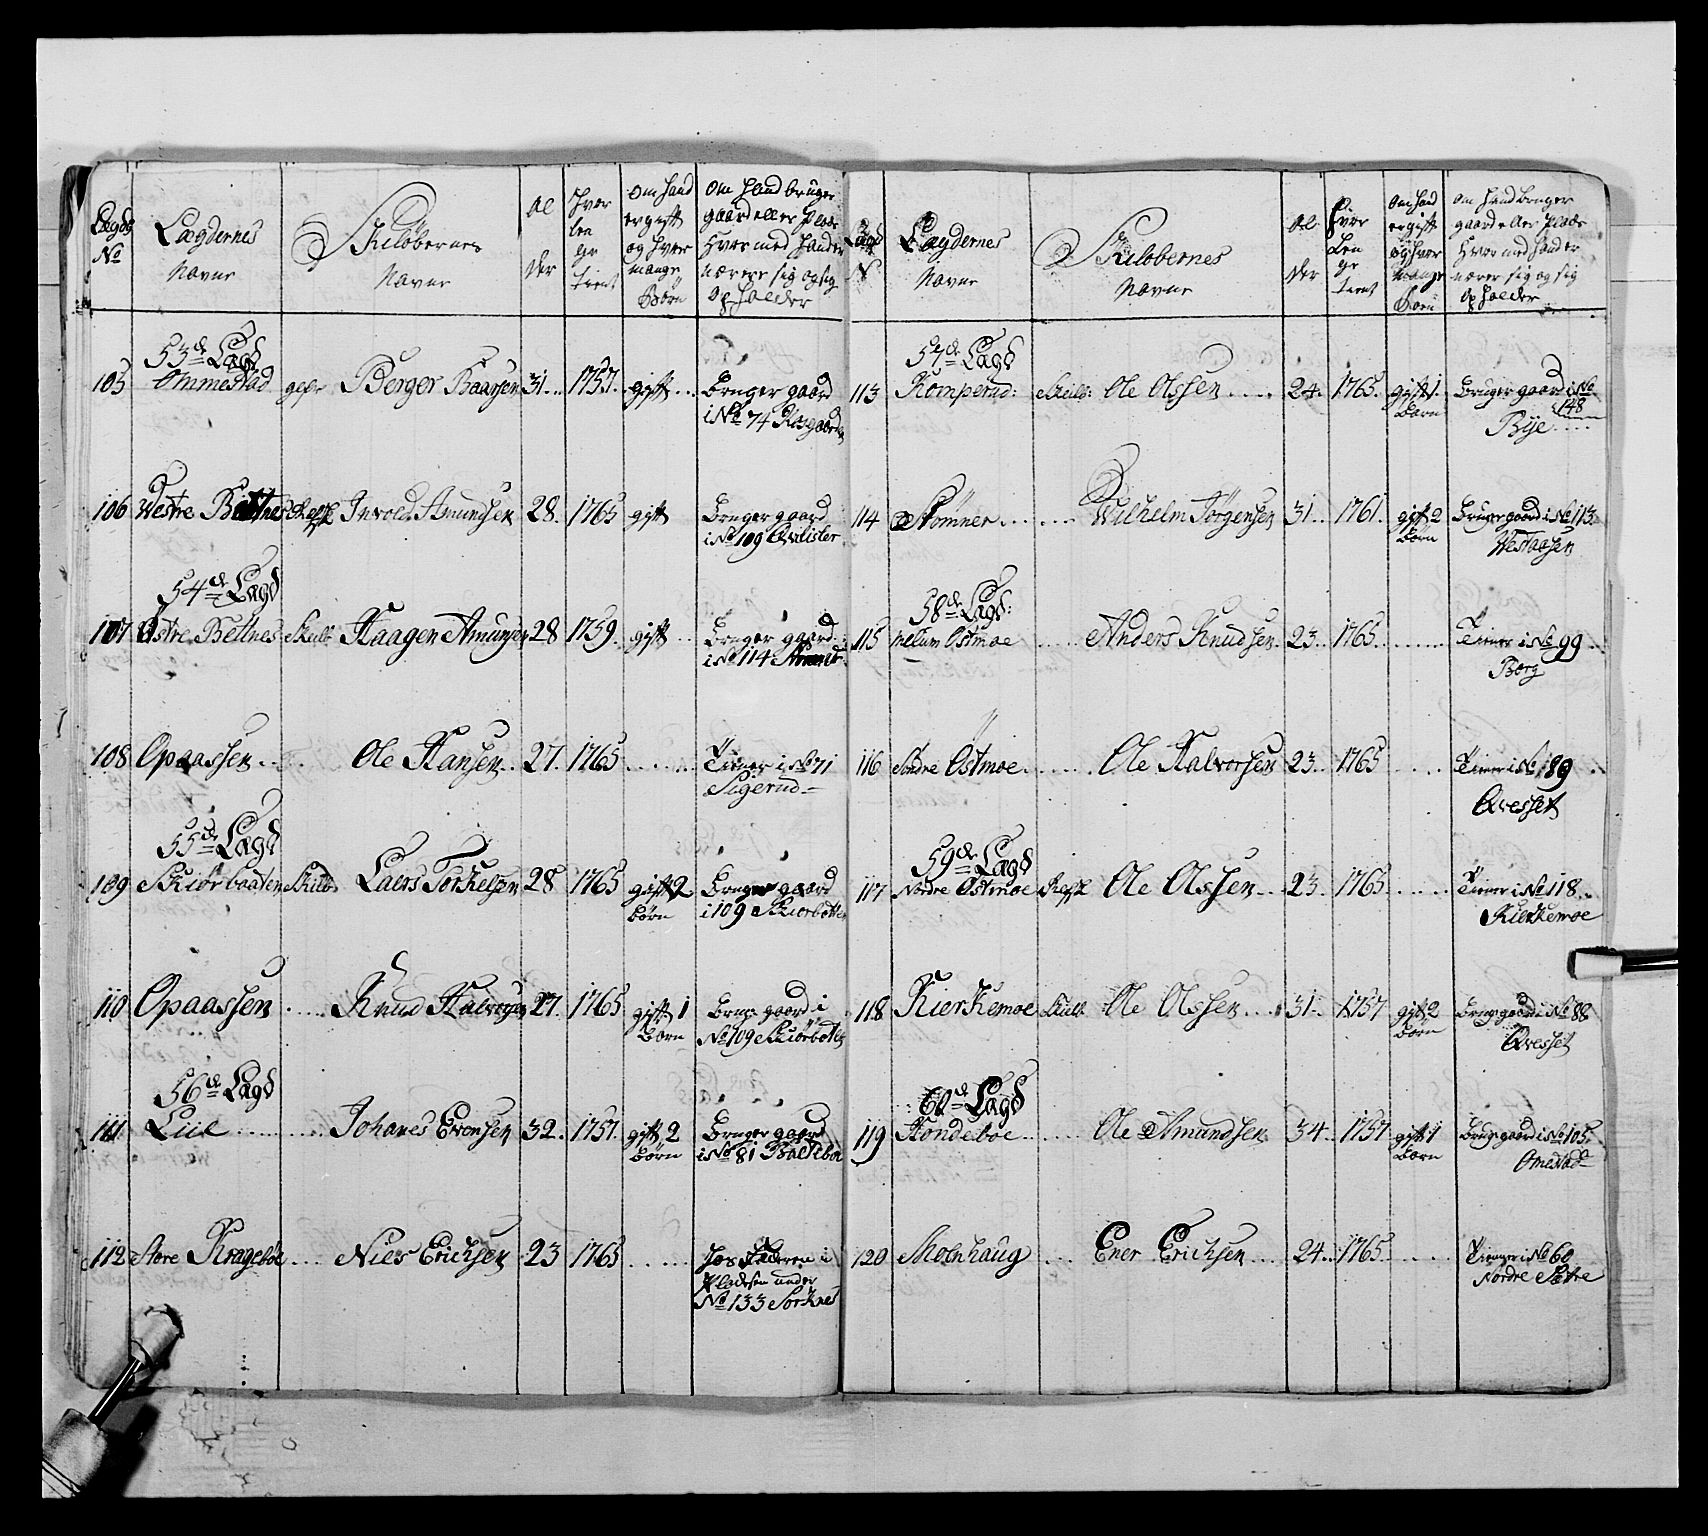 Lægds No
Lægdernes Navne
Skiløbernes Navne
Alder
Hvor lenge tient
Om hand er gift og hvor mange Børn
Om hand bruger gaard eller Plads Hvor med hand er nærer sig og sig opholder
53de Lægd
105 Ommestad gefr Berger Baarsen 31 1757 gift Bruger gaard
i No 74
106 Westre Bettnes Amundsen 28. 1765 gift Bruger gaard
i No 109
54de Lægd
107 Østre Bettnes Skiilb Haagen Amunsen 28 1759. gift Bruger gaard
i No 114
108 Opaassen Ole Hansen 27. 1765 Tiener i No 71
Sigerud
55de Lægd
109 Skiørbaaten Skiilb Laers Torkelsen 28 1765 gift 2 Børn Bruger gaard
i 109 Skiørbotten
110 Opaassen Knud Halvorsen 27. 1765 gift 1 Børn Bruger gaard i
No 109 Skiørboten
56de Lægd
111 Liie Johanes Evensen 32. 1757. gift 2 Børn Bruger gaard
i No 81
112 Store Kragebøe Niels Erichsen 23 1765 Hos Faderen i
Pladsen under
No 133 Sorknes
Lægd N
Lægdernes Navne
Skiløbernes Navne
Alder
Hvor Lenge tient
Om hand er gift og hvor mange Børn
Om hand bruger gaard eller Plads Hvor med hand er nærer sig og sig opholder
57de Lægd
113 Komperud: Skiilb: Ole Olssen 24. 1765. gift 1. Barn Bruger gaard i No
148
Bye
114 Stømner Wilhelm Jørgensen 31. 1761. gift 2 Børn Bruger gaard i No 113.
Westaasen
58de Lægd:
115 Mellum Østmoe Anders Knudsen 23. 1765. Tiener i No 99
Berg
116 Søndre Østmoe Ole Halvorsen 23. 1765 Tiener i No 189
Qvesset
59de Lægd
117 Nordre Østmoe Ole Olssen 23. 1765 Tiener i No 118
Kierkemoe
118 Kierkemoe Skiilb Ole Olssen 31. 1757 gift 2 Børn Bruger gaard i No 88
Qvesset
60de Lægd
119 Kondeboe Ole Amundsen 34. 1757 gift 1 Børn Bruger gaard i No 105.
Omestad
120 Skolnhaug Ener Erichsen 24. 1765. Tiener i No 60
Nordre Sætre